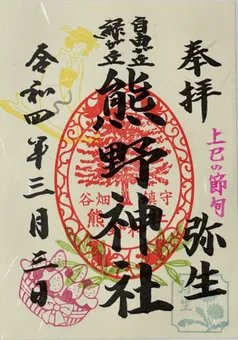 奉拝
上巳の節句
弥生
自由が丘
緑が丘
熊野神社
谷畑
鎮守
熊
令和四年三月三日